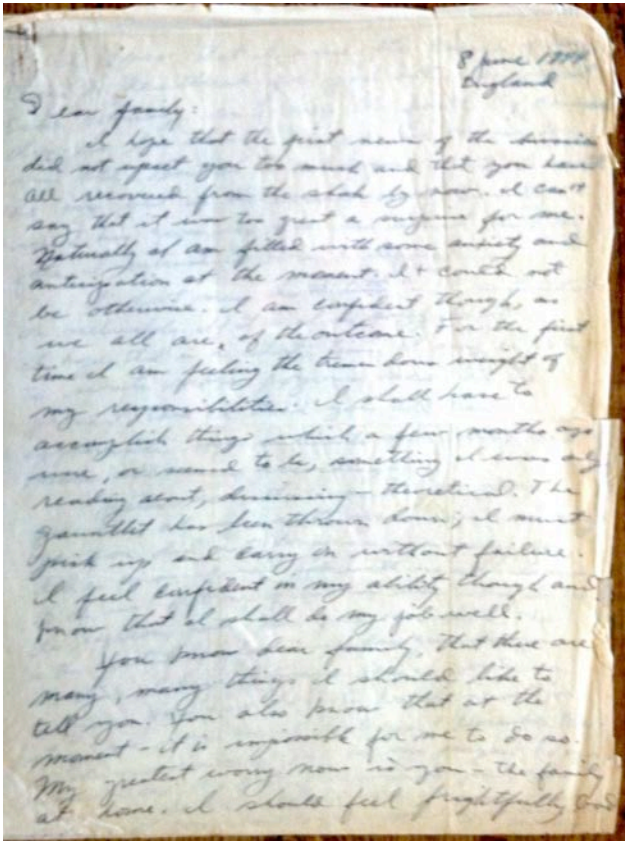 8 June 1944
England
Dear family:
I hope that the first news of the invasion
did not upset you too much and that you have
all recovered from the shock by now. I can't
say that it was too great a surprise for me.
Naturally I am filled with some anxiety and
anticipation at the moment. It could not
be otherwise. I am confident though, as
we all are, of the outcome. For the first
time I am feeling the tremendous weight of
my responsibilities. I shall have to
accomplish things which a few months ago
were, or seemed to be, something I was only
reading about, discussing - theoretical. The
gauntlet has been thrown down; I must
pick up and carry on without failure.
I feel confident in my ability though and
know that I shall do my job well.
You know dear family, that there are
many, many things I should like to
tell you. You also know that at the
moment - it is impossible for me to do so.
My greatest worry now is you - the family
at home. I should feel frightfully